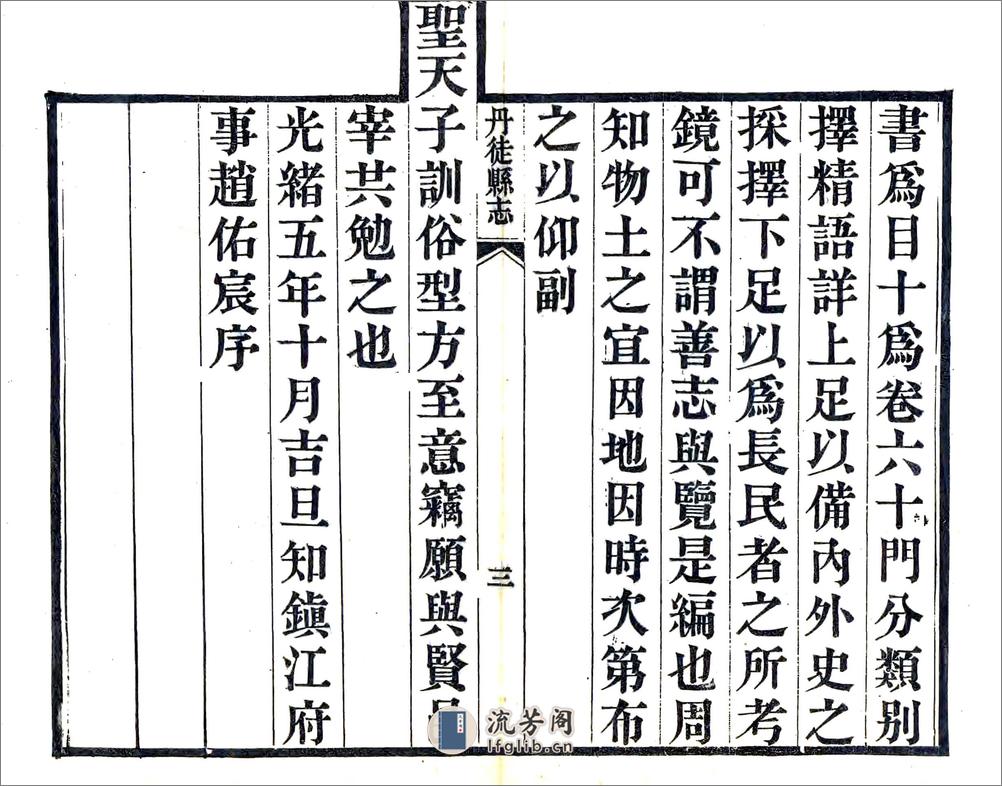 書爲目十爲卷六十門分類別
擇精語詳上足以備內外史之
採擇下足以爲長民者之所考
鏡可不謂善志與覽是編也周
知物土之宜因地因時次第布
之以仰副
丹徒縣志
三
聖天子訓俗型方至意竊願與賢
宰共勉之也
光緒五年十月吉旦知鎮江府
事趙佑宸序
流芳阁
lfglib.cn